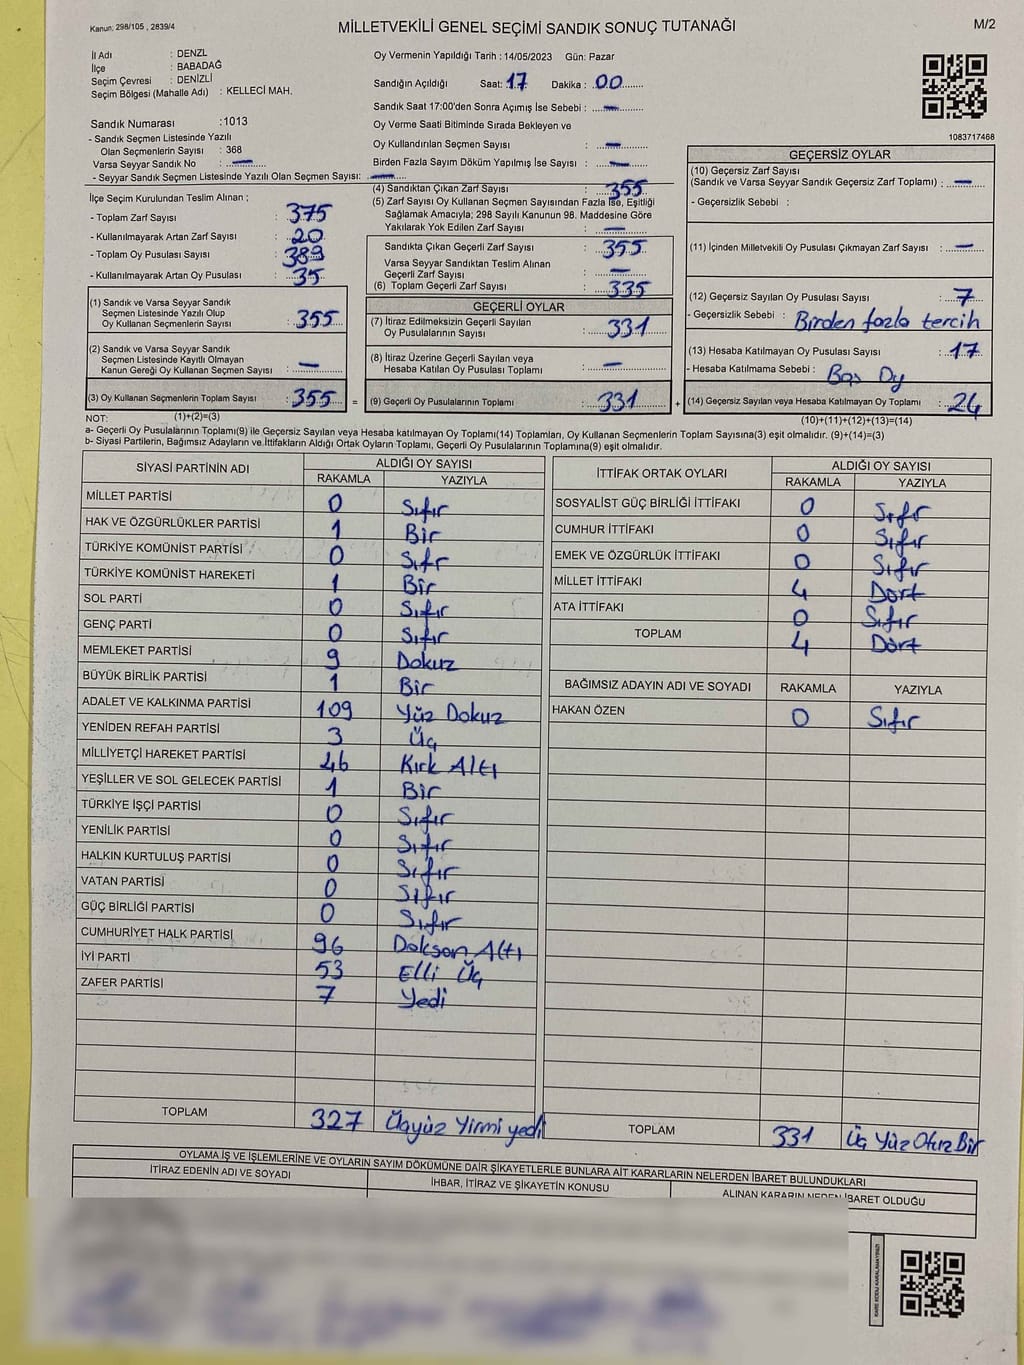 Kanun: 298/105 , 2839/4
MİLLETVEKİLİ GENEL SEÇİMİ SANDIK SONUÇ TUTANAĞI
M/2
İl Adı : DENZL
İlçe : BABADAĞ
Seçim Çevresi : DENİZLİ
Seçim Bölgesi (Mahalle Adı) : KELLECİ MAH.
Sandık Numarası :1013
- Sandık Seçmen Listesinde Yazılı
Olan Seçmenlerin Sayısı : 368
Varsa Seyyar Sandık No : —
- Seyyar Sandık Seçmen Listesinde Yazılı Olan Seçmen Sayısı: —
Oy Vermenin Yapıldığı Tarih : 14/05/2023 Gün: Pazar
Sandığın Açıldığı Saat: 17 Dakika : 00
Sandık Saat 17:00'den Sonra Açımış İse Sebebi : —
Oy Verme Saati Bitiminde Sırada Bekleyen ve
Oy Kullandırılan Seçmen Sayısı : —
Birden Fazla Sayım Döküm Yapılmış İse Sayısı : —
1083717468
İlçe Seçim Kurulundan Teslim Alınan ;
- Toplam Zarf Sayısı : 375
- Kullanılmayarak Artan Zarf Sayısı : 20
- Toplam Oy Pusulası Sayısı : 389
- Kullanılmayarak Artan Oy Pusulası : 35
(1) Sandık ve Varsa Seyyar Sandık
Seçmen Listesinde Yazılı Olup
Oy Kullanan Seçmenlerin Sayısı : 355
(2) Sandık ve Varsa Seyyar Sandık
Seçmen Listesinde Kayıtlı Olmayan
Kanun Gereği Oy Kullanan Seçmen Sayısı : —
(3) Oy Kullanan Seçmenlerin Toplam Sayısı : 355 =
(4) Sandıktan Çıkan Zarf Sayısı : 355
(5) Zarf Sayısı Oy Kullanan Seçmen Sayısından Fazla İse, Eşitliği
Sağlamak Amacıyla; 298 Sayılı Kanunun 98. Maddesine Göre
Yakılarak Yok Edilen Zarf Sayısı : —
Sandıkta Çıkan Geçerli Zarf Sayısı : 355
Varsa Seyyar Sandıktan Teslim Alınan
Geçerli Zarf Sayısı : —
(6) Toplam Geçerli Zarf Sayısı : 335
GEÇERLİ OYLAR
(7) İtiraz Edilmeksizin Geçerli Sayılan
Oy Pusulalarının Sayısı : 331
(8) İtiraz Üzerine Geçerli Sayılan veya
Hesaba Katılan Oy Pusulası Toplamı : —
(9) Geçerli Oy Pusulalarının Toplamı : 331 +
GEÇERSİZ OYLAR
(10) Geçersiz Zarf Sayısı
(Sandık ve Varsa Seyyar Sandık Geçersiz Zarf Toplamı) : —
- Geçersizlik Sebebi :
(11) İçinden Milletvekili Oy Pusulası Çıkmayan Zarf Sayısı : —
(12) Geçersiz Sayılan Oy Pusulası Sayısı : 7
- Geçersizlik Sebebi : Birden fazla tercih
(13) Hesaba Katılmayan Oy Pusulası Sayısı : 17
- Hesaba Katılmama Sebebi : Boş Oy
(14) Geçersiz Sayılan veya Hesaba Katılmayan Oy Toplamı : 24
NOT: (1)+(2)=(3) (10)+(11)+(12)+(13)=(14)
a- Geçerli Oy Pusulalarının Toplamı(9) ile Geçersiz Sayılan veya Hesaba katılmayan Oy Toplamı(14) Toplamları, Oy Kullanan Seçmenlerin Toplam Sayısına(3) eşit olmalıdır. (9)+(14)=(3)
b- Siyasi Partilerin, Bağımsız Adayların ve İttifakların Aldığı Ortak Oyların Toplamı, Geçerli Oy Pusulalarının Toplamına(9) eşit olmalıdır.
SİYASİ PARTİNİN ADI ALDIĞI OY SAYISI
RAKAMLA YAZIYLA
MİLLET PARTİSİ 0 Sıfır
HAK VE ÖZGÜRLÜKLER PARTİSİ 1 Bir
TÜRKİYE KOMÜNİST PARTİSİ 0 Sıfr
TÜRKİYE KOMÜNİST HAREKETİ 1 Bir
SOL PARTİ 0 Sıfır
GENÇ PARTİ 0 Sıfır
MEMLEKET PARTİSİ 9 Dokuz
BÜYÜK BİRLİK PARTİSİ 1 Bir
ADALET VE KALKINMA PARTİSİ 109 Yüz Dokuz
YENİDEN REFAH PARTİSİ 3 Üç
MİLLİYETÇİ HAREKET PARTİSİ 46 Kırk Altı
YEŞİLLER VE SOL GELECEK PARTİSİ 1 Bir
TÜRKİYE İŞÇİ PARTİSİ 0 Sıfır
YENİLİK PARTİSİ 0 Sıfır
HALKIN KURTULUŞ PARTİSİ 0 Sıfır
VATAN PARTİSİ 0 Sıfır
GÜÇ BİRLİĞİ PARTİSİ 0 Sıfır
CUMHURİYET HALK PARTİSİ 96 Doksan Altı
İYİ PARTİ 53 Elli Üç
ZAFER PARTİSİ 7 Yedi
TOPLAM 327 Üçyüz Yirmi yedi
İTTİFAK ORTAK OYLARI ALDIĞI OY SAYISI
RAKAMLA YAZIYLA
SOSYALİST GÜÇ BİRLİĞİ İTTİFAKI 0 Sıfır
CUMHUR İTTİFAKI 0 Sıfır
EMEK VE ÖZGÜRLÜK İTTİFAKI 0 Sıfır
MİLLET İTTİFAKI 4 Dört
ATA İTTİFAKI 0 Sıfır
TOPLAM 4 Dört
BAĞIMSIZ ADAYIN ADI VE SOYADI RAKAMLA YAZIYLA
HAKAN ÖZEN 0 Sıfır
TOPLAM 331 Üç Yüz Otuz Bir
OYLAMA İŞ VE İŞLEMLERİNE VE OYLARIN SAYIM DÖKÜMÜNE DAİR ŞİKAYETLERLE BUNLARA AİT KARARLARIN NELERDEN İBARET BULUNDUKLARI
İTİRAZ EDENİN ADI VE SOYADI İHBAR, İTİRAZ VE ŞİKAYETİN KONUSU ALINAN KARARIN NEDEN İBARET OLDUĞU
KARE KODU KARALAMAYINIZ!